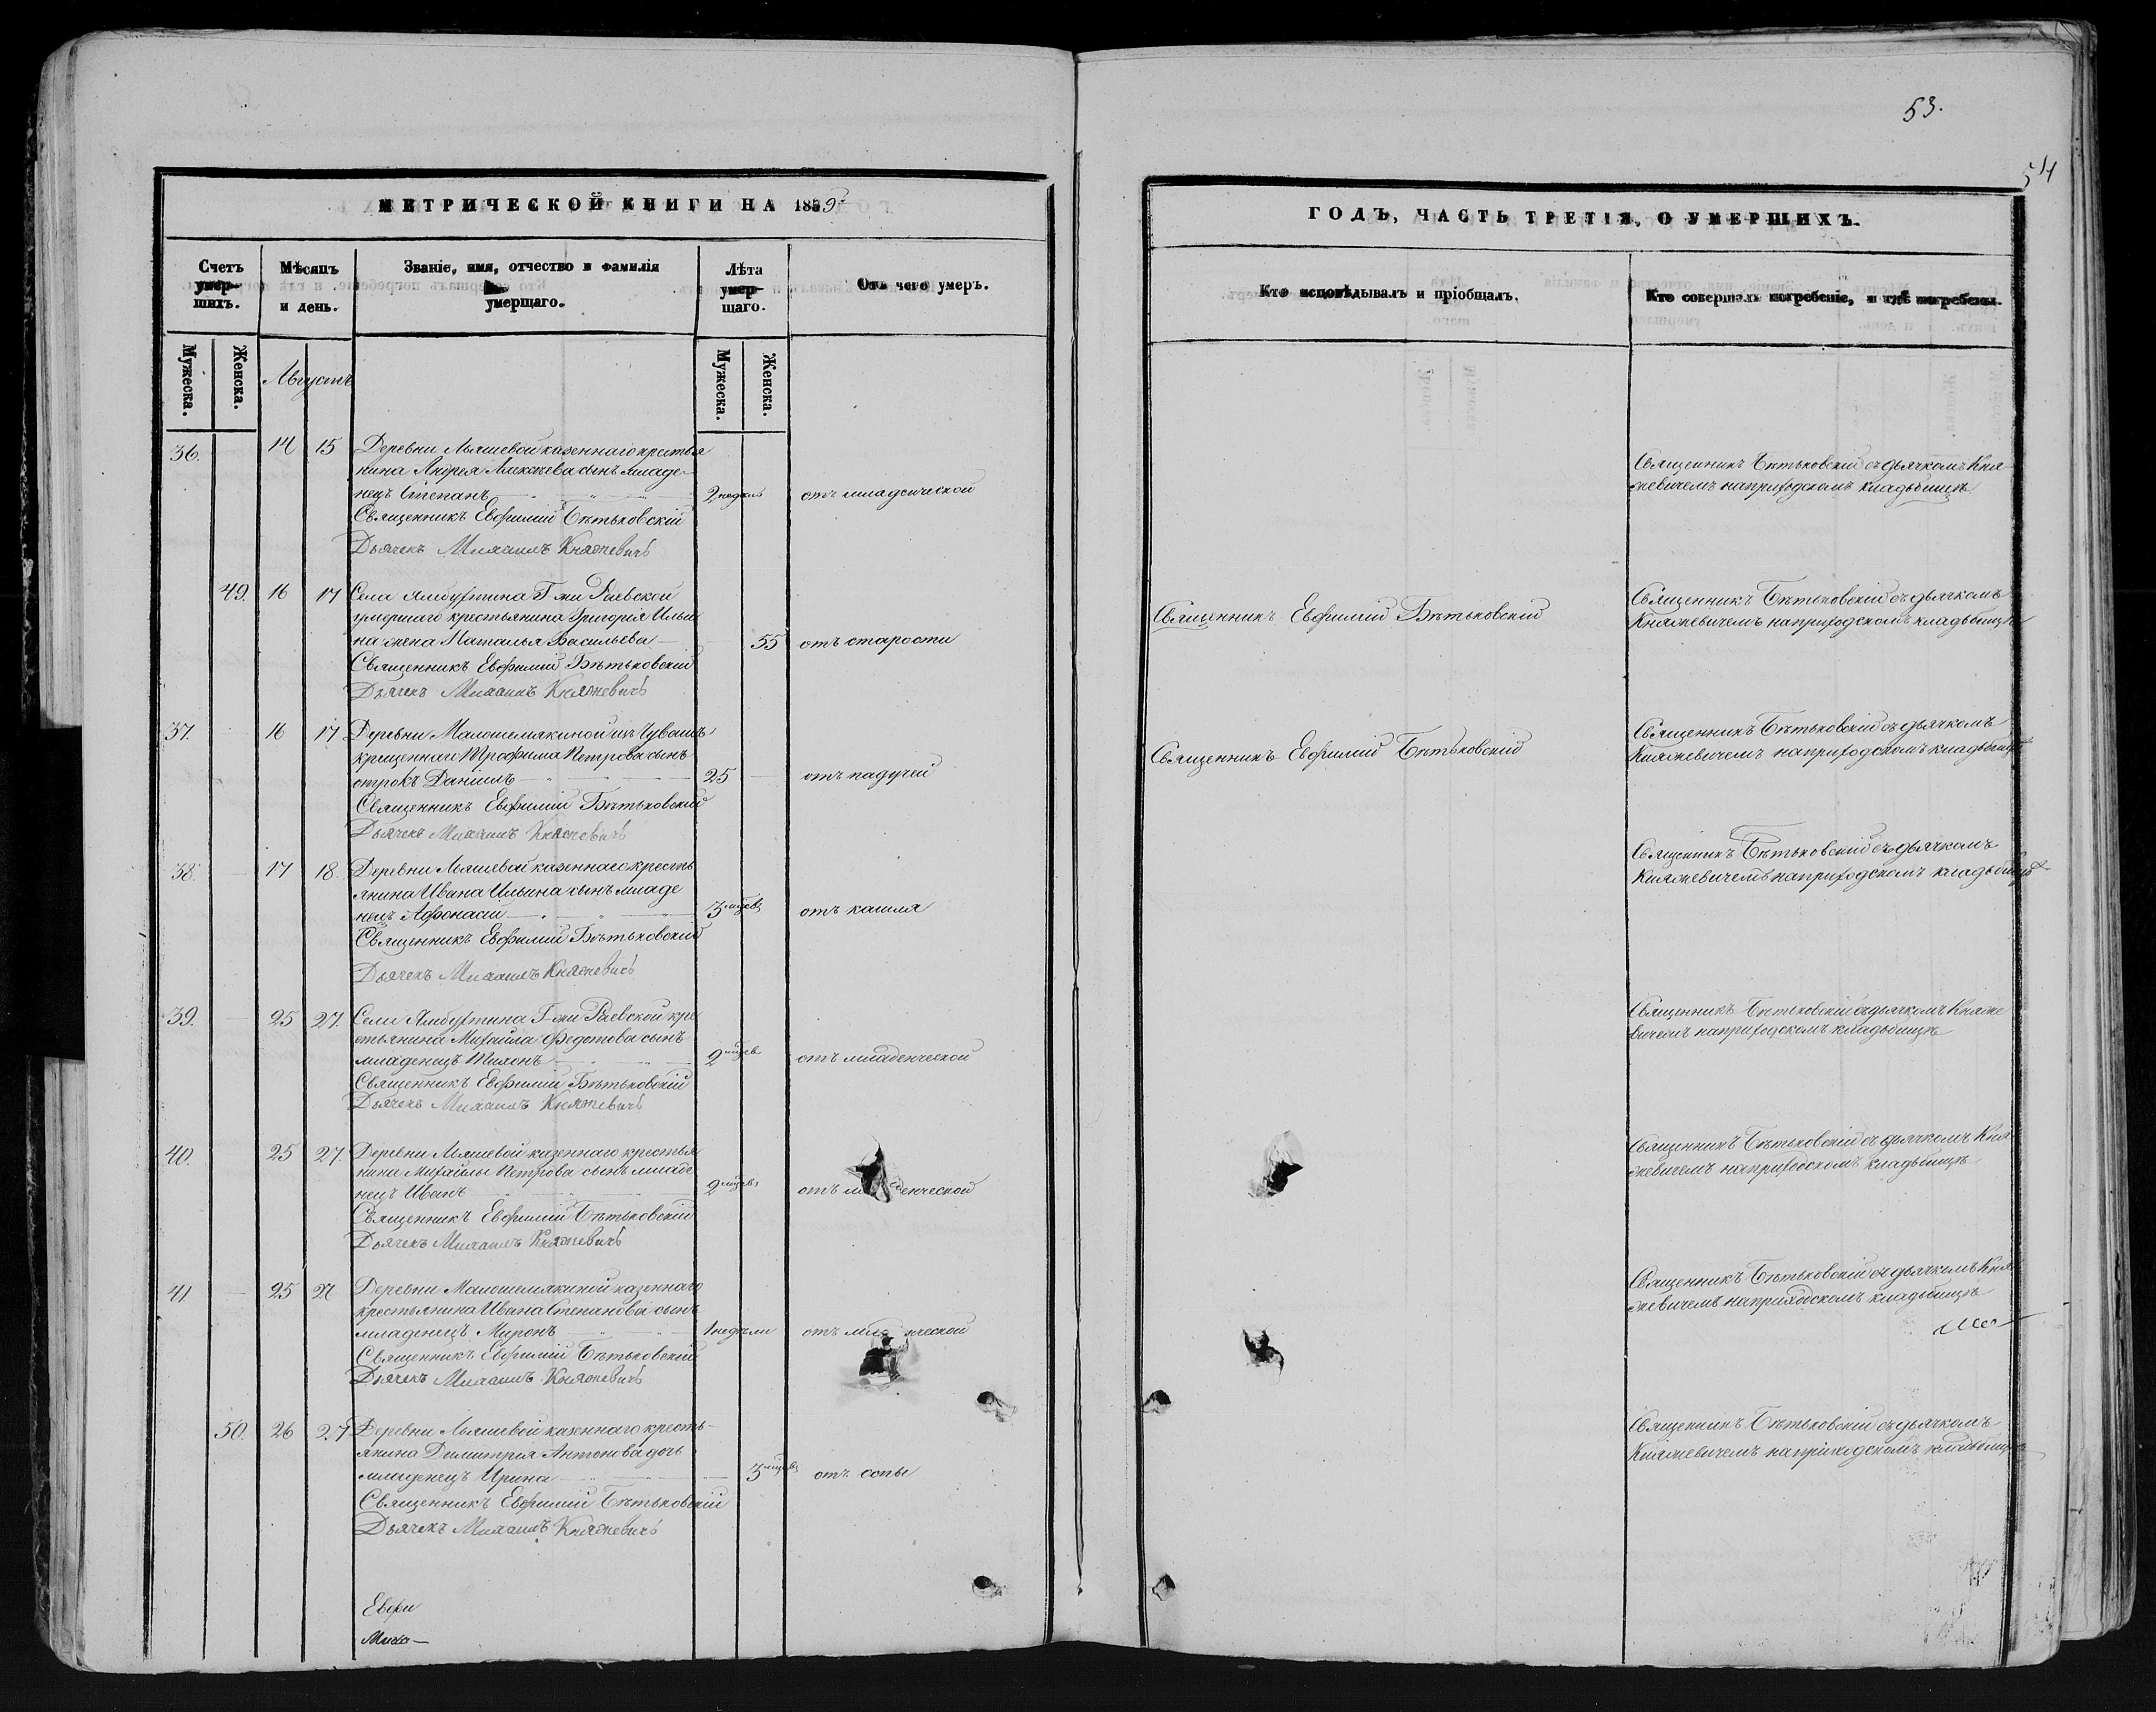 53.
54
МЕТРИЧЕСКОЙ КНИГИ НА 1859
ГОДЪ, ЧАСТЬ ТРЕТІЯ, О УМЕРШИХЪ.
Счетъ умер-шихъ.
Мѣсяцъ и день.
Званіе, имя, отчество и фамилія умершаго.
Лѣта умер-шаго.
Отъ чего умеръ.
Кто исповѣдывалъ и пріобщалъ.
Кто совершалъ погребеніе, и гдѣ погребены.
Мужеска.
Женска.
Августъ
Мужеска.
Женска.
36. 14 15 Деревни Ляшевой казеннаго крестья
нина Андрея Алексѣева сынъ младе-
нецъ Степанъ 2 недѣль отъ младенческой
Священникъ Евфимій Бѣтьковскій
Дьячекъ Михаилъ Княжевичъ
Священникъ Бѣтьковскій съ дьячкомъ Кня
жевичемъ на приходскомъ кладбищѣ
49. 16 17 Села Ямбухтина Г жи Раевской
умершаго крестьянина Григорія Ильи
на жена Наталья Васильева 55 отъ старости
Священникъ Евфимій Бѣтьковскій
Дьячекъ Михаилъ Княжевичъ
Священникъ Евфимій Бѣтьковскій
Священникъ Бѣтьковскій съ дьячкомъ
Княжевичемъ на приходскомъ кладбищѣ
37. 16 17 Деревни Малошемякиной изъ Чувашъ
крещеннаго Трофима Петрова сынъ
отрокъ Даниилъ 25 отъ падучей
Священникъ Евфимій Бѣтьковскій
Дьячекъ Михаилъ Княжевичъ
Священникъ Евфимій Бѣтьковскій
Священникъ Бѣтьковскій съ дьячкомъ
Княжевичемъ на приходскомъ кладбищѣ
38. 17 18. Деревни Ляшевой казеннаго кресть
янина Ивана Ильина сынъ младе
нецъ Афонасій 3 мѣсяцевъ отъ кашля
Священникъ Евфимій Бѣтьковскій
Дьячекъ Михаилъ Княжевичъ
Священникъ Бѣтьковскій съ дьячкомъ
Княжевичемъ на приходскомъ кладбищѣ
39. 25 27. Села Ямбухтина Г жи Раевской кре
стьянина Михайла Федотова сынъ
младенецъ Тихонъ 2 отъ младенческой
Священникъ Евфимій Бѣтьковскій
Дьячекъ Михаилъ Княжевичъ
Священникъ Бѣтьковскій съ дьячкомъ Княже
вичемъ на приходскомъ кладбищѣ
40. 25 27. Деревни Ляшевой казеннаго крестья
нина Михайлы Петрова сынъ младе
нецъ Иванъ 2 отъ м денческой
Священникъ Евфимій Бѣтьковскій
Дьячекъ Михаилъ Княжевичъ
Священникъ Бѣтьковскій съ дьячкомъ Кня
жевичемъ на приходскомъ кладбищѣ
41 25 27 Деревни Малошемякиной казеннаго
крестьянина Ивана Степанова сынъ
младенецъ Миронъ 1 недѣли отъ мла нческой
Священникъ Евфимій Бѣтьковскій
Дьячекъ Михаилъ Княжевичъ
Священникъ Бѣтьковскій съ дьячкомъ Кня
жевичемъ на приходскомъ кладбищѣ
50. 26 27 Деревни Ляшевой казеннаго кресть-
янина Димитрія Антонова дочь
младенецъ Ирина 3 отъ оспы
Священникъ Евфимій Бѣтьковскій
Дьячекъ Михаилъ Княжевичъ
Священникъ Бѣтьковскій съ дьячкомъ
Княжевичемъ на приходскомъ кладбищѣ
Евфи
Миха-